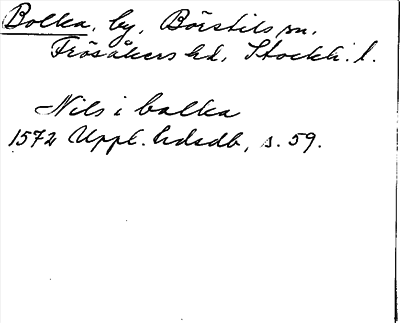 Bolka, by, Börstils sn.
Frösåkers hd, Stockh. l.
Nils i bolka
1572 Uppl. hdsdb, s. 59.